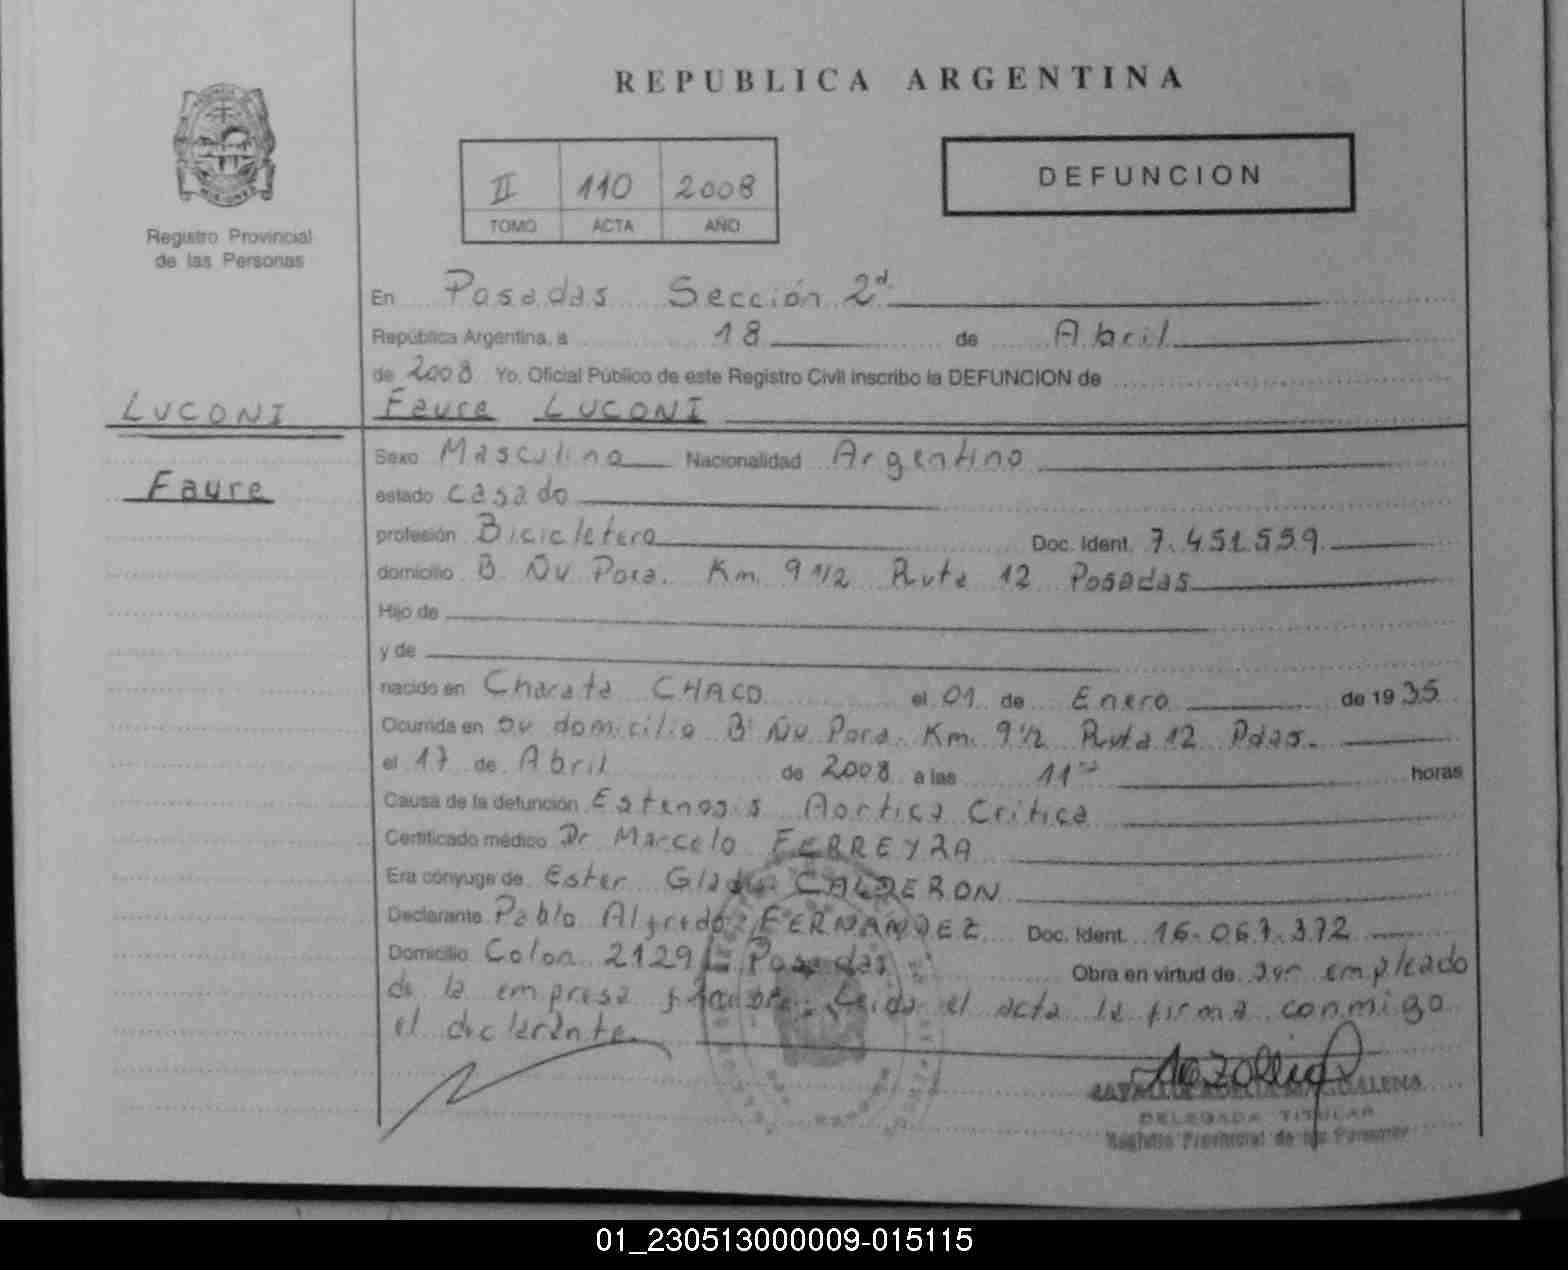 REPUBLICA ARGENTINA
DEFUNCION
II 110 2008
TOMO ACTA AÑO
Registro Provincial
de las Personas
En Posadas Sección 2ª
República Argentina, a 18 de Abril
de 2008 Yo, Oficial Público de este Registro Civil inscribo la DEFUNCION de
LUCONI
Faure LUCONI
Faure
Sexo Masculino Nacionalidad Argentino
estado casado
profesión Bicicletero Doc. Ident. 7.451.559
domicilio B. Ñu Pora. Km. 9 1/2 Ruta 12 Posadas
Hijo de
y de
nacido en Charata CHACO el 01 de Enero de 1935
Ocurrida en su domicilio B. Ñu Pora. Km. 9 1/2 Ruta 12 Pdas.
el 17 de Abril de 2008 a las 11 horas
Causa de la defunción Estenosis Aortica Critica
Certificado médico Dr Marcelo FERREYRA
Era cónyuge de Ester Gladys CALDERON
Declarante Pablo Alfredo FERNANDEZ Doc. Ident. 16.067.372
Domicilio Colon 2129 - Posadas Obra en virtud de ser empleado
de la empresa funebre. Leida el acta la firma conmigo
el declarante.
MAGDALENA
DELEGADA TITULAR
Registro Provincial de las Personas
01_230513000009-015115